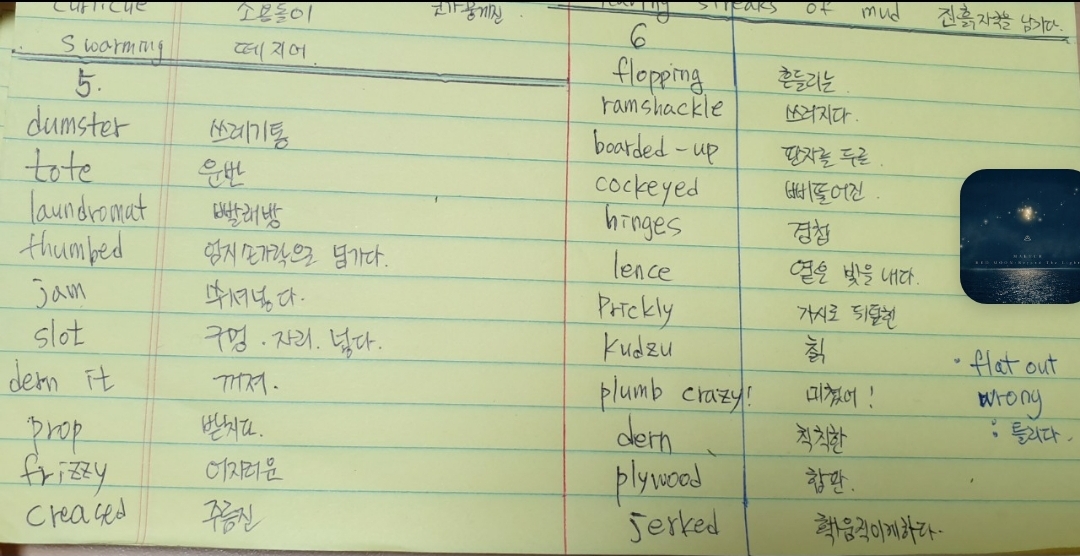 curlicue 소용돌이
swarming 떼 지어.
5.
dumster 쓰레기통
tote 운반
laundromat 빨래방
thumbed 엄지손가락으로 넘기다.
jam 쑤셔넣다.
slot 구멍. 자리. 넣다.
dern it 꺼져.
prop 받치다.
frizzy 어지러운
creaced 주름진
streaks of mud 진흙자국을 남기다.
6
flopping 흔들리는
ramshackle 쓰러지다.
boarded-up 판자를 두른.
cockeyed 삐뚤어진
hinges 경첩
lence 옅은 빛을 내다.
prickly 가시로 뒤덮힌
kudzu 칡
plumb crazy! 미쳤어!
dern 칙칙한
plywood 합판.
jerked 확움직이게하다.
• flat out
wrong
: 틀리다.